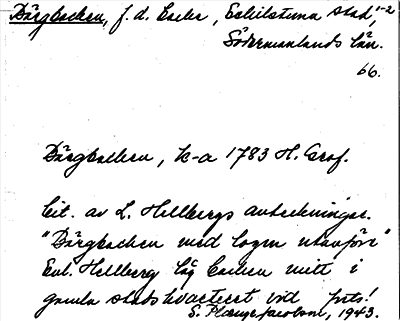 Bärgbacken, f. d. backe, Eskilstuna stad, 1-2
Södermanlands län.
66.
Bärgbacken, k-a 1783 H. Graf.
Cit. av L. Hellbergs anteckningar.
"Bärgbacken med logen utanför"
Enl. Hellberg låg backen mitt i
gamla stadskvarteret vid
S. Jacobson, 1943.